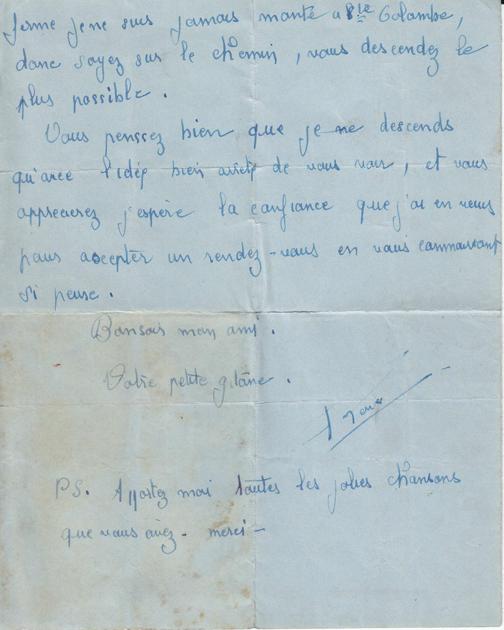 ferme je ne suis jamais monté à Ste Colombe,
donc soyez sur le chemin, vous descendez le
plus possible.
Vous penssez bien que je ne descends
qu'avec l'idée bien arrêté de vous voir, et vous
apprecierez j'espère la confiance que j'ai en vous
pour accepter un rendez-vous en vous connaissant
si peuse.
Bonsoir mon ami.
Votre petite gitane.
PS. Apportez moi toutes les jolies chansons
que vous avez. merci -